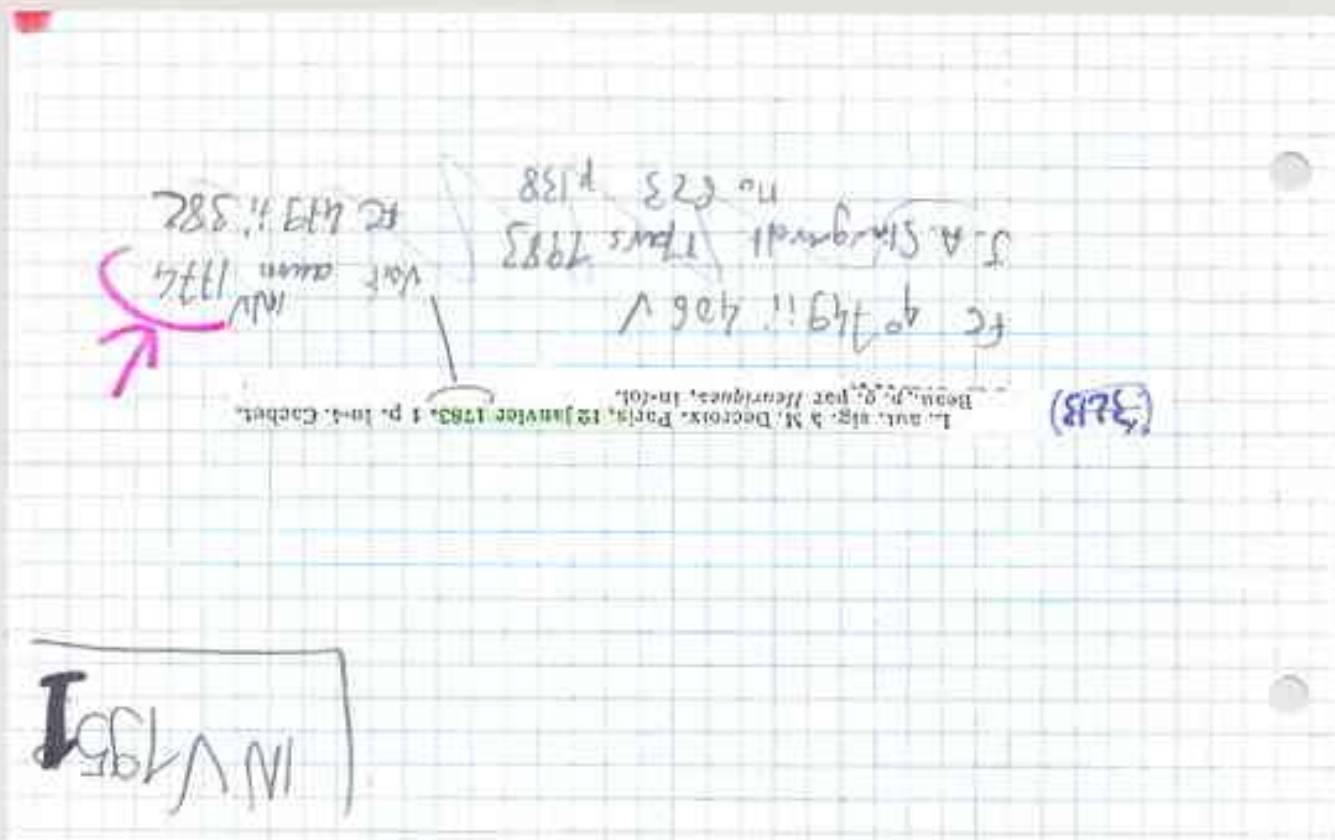 INV 1951
L. aut. sig. à M. Decroix. Paris, 12 janvier 1783, 1 p. in-4. Cachet.
Beau. p. g. par Henriques, in-fol.
FC 4° 749 ii 406 V
J. A. Stargardt mars 1983
no 623 p 138
INV
1774
FC 479 ii 382